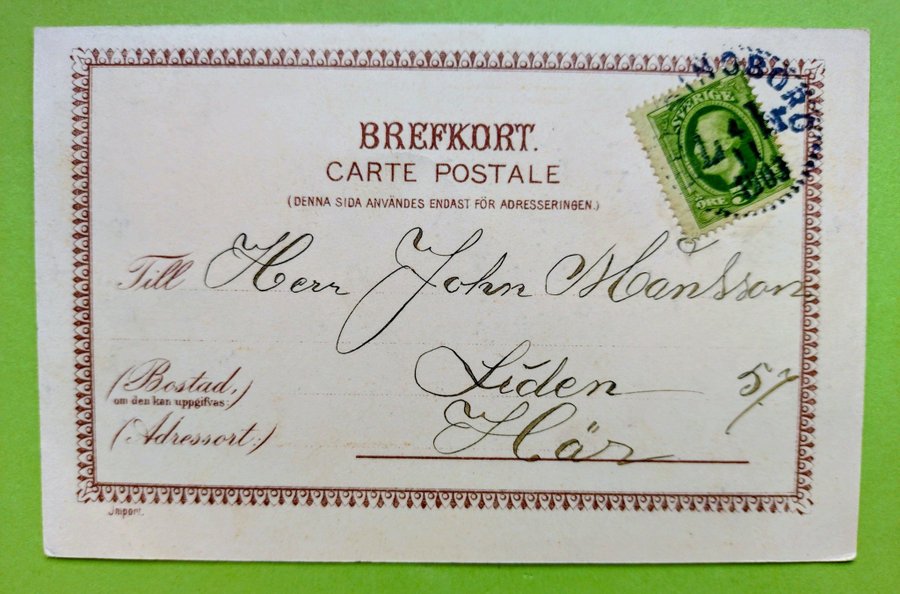 BREFKORT.
CARTE POSTALE
(DENNA SIDA ANVÄNDES ENDAST FÖR ADRESSERINGEN.)
SVERIGE
ÖRE
1901
Till Herr John Månsson
(Bostad,
om den kan uppgifvas:)
Liden 57
(Adressort:)
Här
Import.